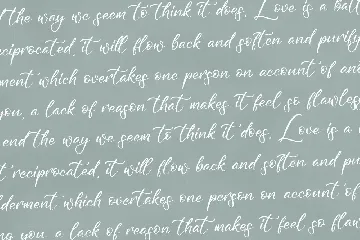 the way we seem to think it does. Love is a batt
reciprocated, it will flow back and soften and purify
ment which overtakes one person on account of an
you, a lack of reason that makes it feel so flawless
end the way we seem to think it does. Love is a
t reciprocated, it will flow back and soften and pu
derment, which overtakes one person on account of
ng you a lack of reason that makes it feel so flaw